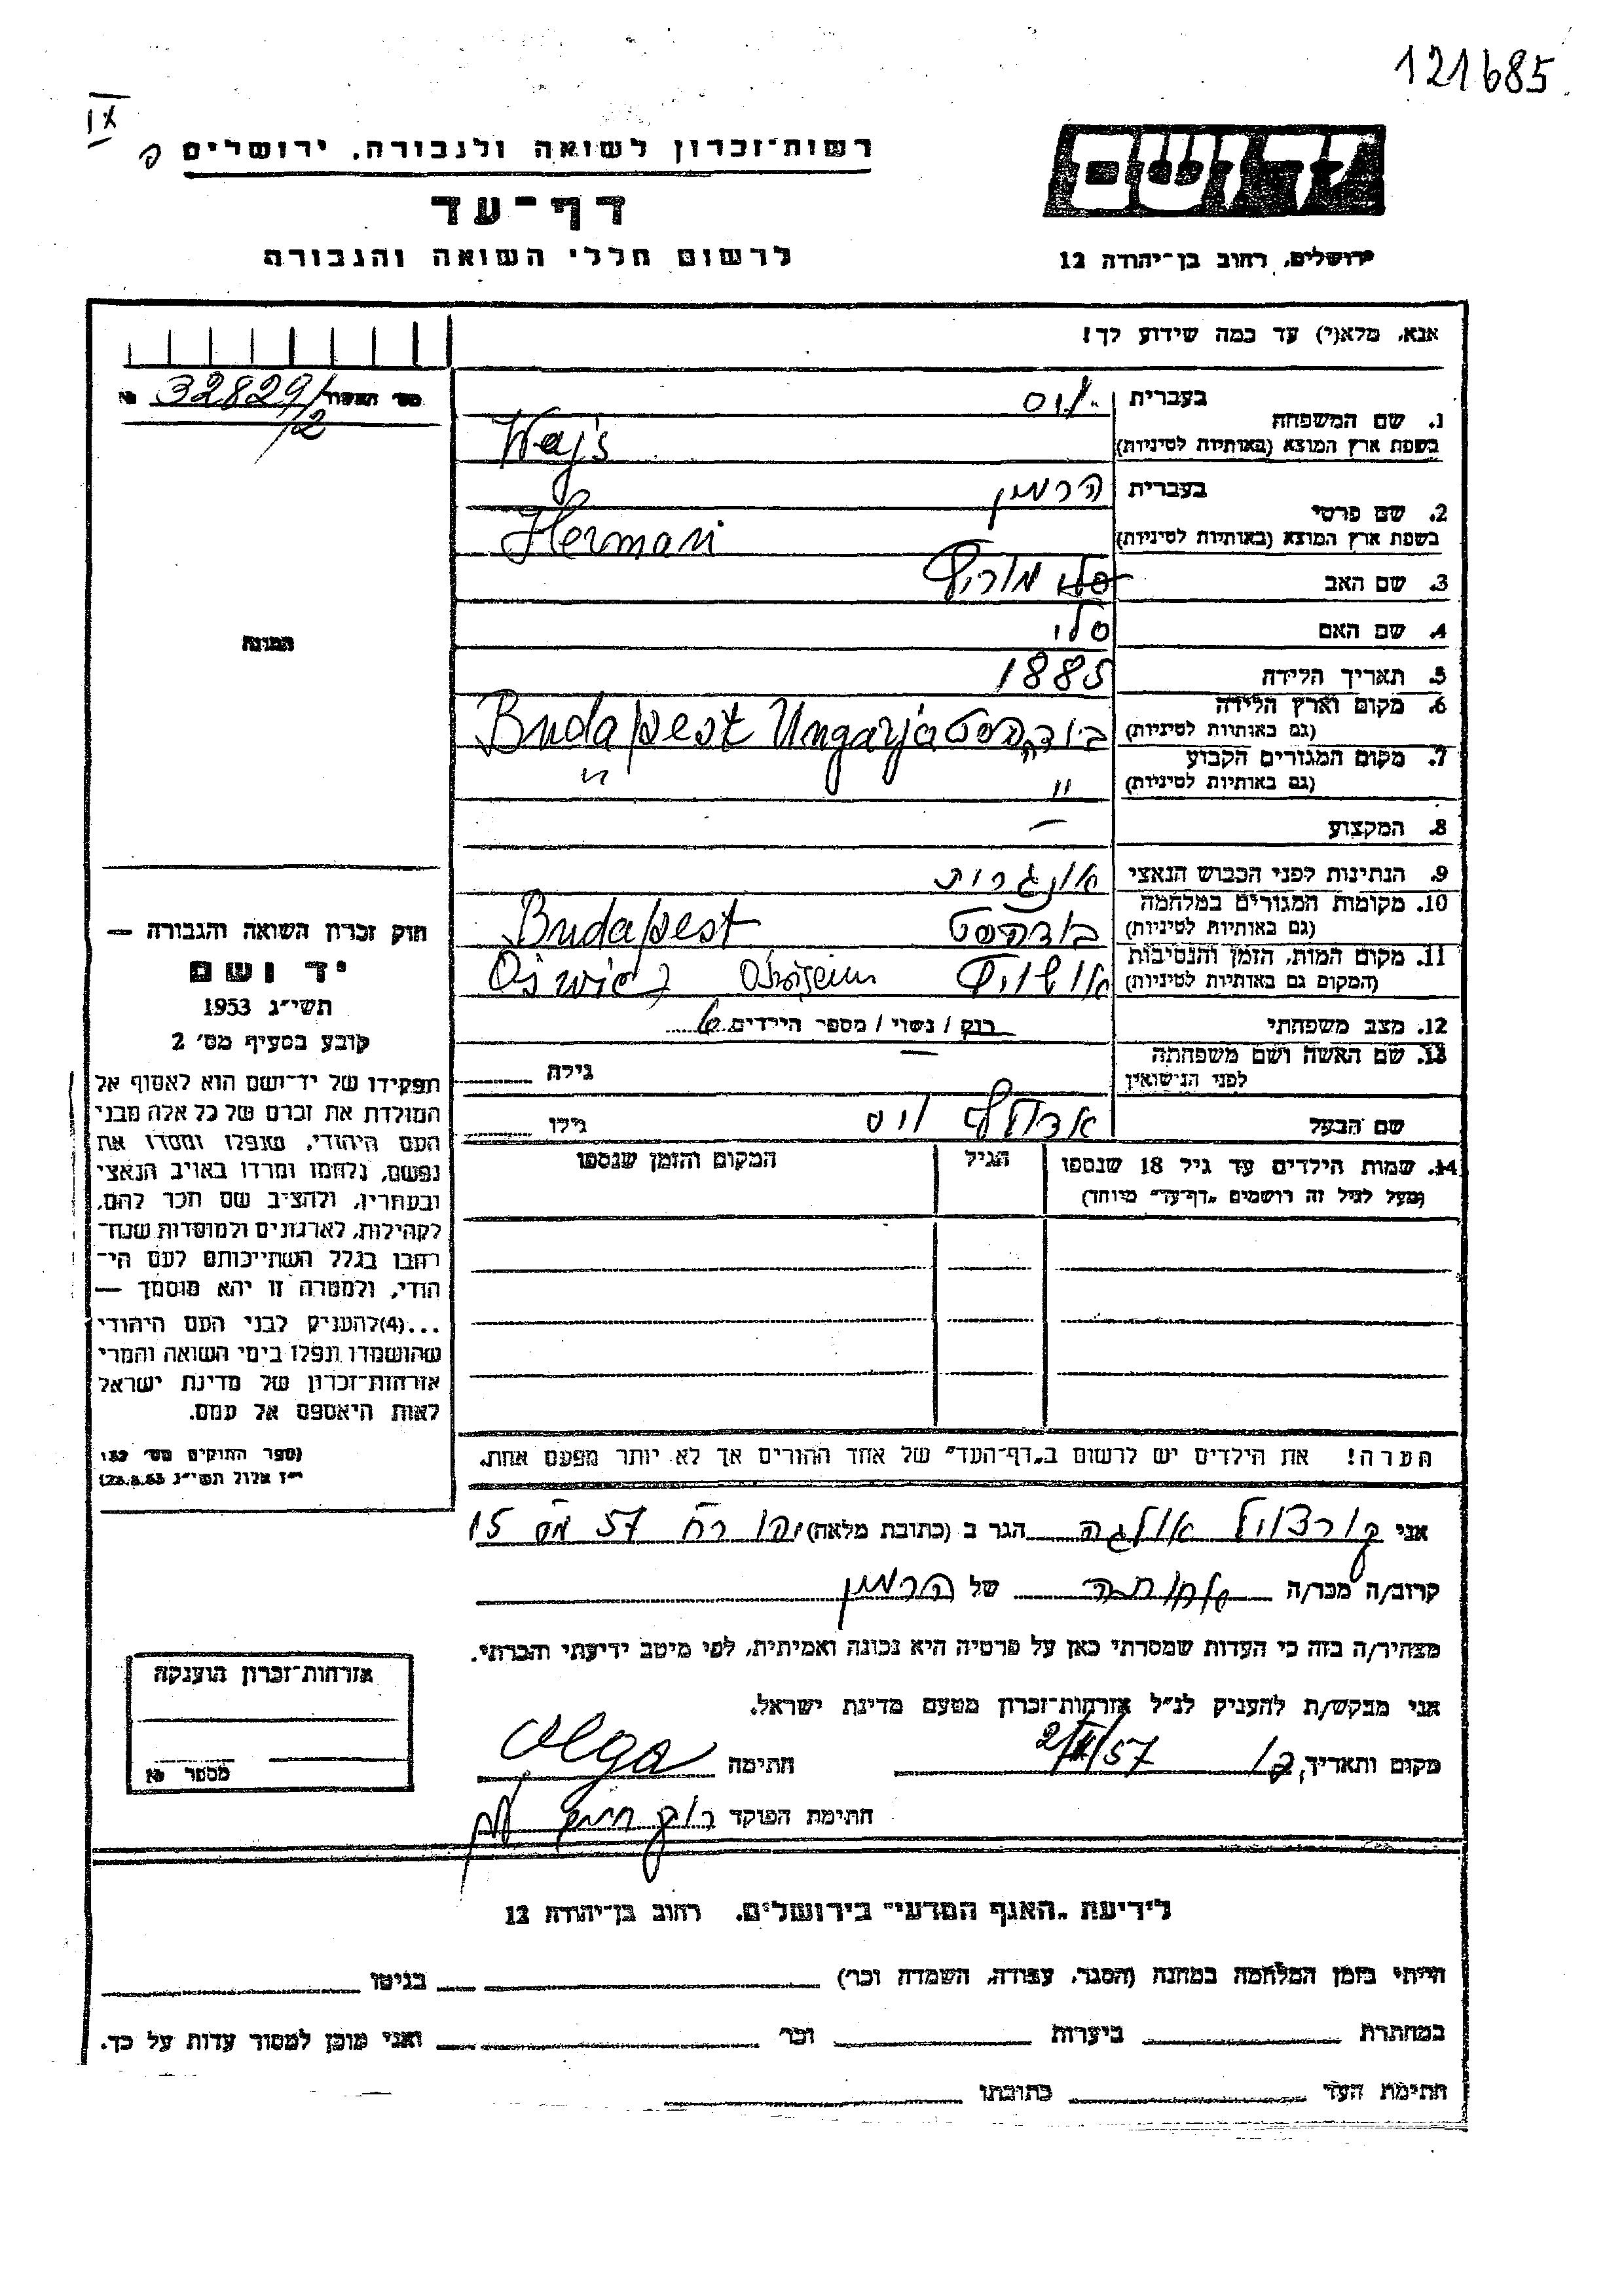 121685
IX
רשות־זכרון לשואה ולגבורה, ירושלים
דף־עד
לרשום חללי השואה והגבורה
יד ושם
ירושלים, רחוב בן־יהודה 12
אנא, מלא(י) עד כמה שידוע לך!
32829/2 №
1. שם המשפחה
בעברית ויס
בשפת ארץ המוצא (באותיות לטיניות) Wajs
2. שם פרטי
בעברית הרמין
בשפת ארץ המוצא (באותיות לטיניות) Herman
3. שם האב מוריץ
4. שם האם סלי
5. תאריך הלידה 1885
6. מקום וארץ הלידה
(גם באותיות לטיניות) בודפסט Budapest Ungarja
7. מקום המגורים הקבוע
(גם באותיות לטיניות) " "
8. המקצוע —
9. הנתינות לפני הכבוש הנאצי אונגרית
10. מקומות המגורים במלחמה
(גם באותיות לטיניות) בודפסט Budapest
11. מקום המות, הזמן והנסיבות
(המקום גם באותיות לטיניות)
12. מצב משפחתי רווק / נשוי / מספר הילדים
13. שם האשה ושם משפחתה
לפני הנישואין — גילה
שם הבעל אדולף ויס גילו
14. שמות הילדים עד גיל 18 שנספו
(מעל לגיל זה רושמים „דף־עד" מיוחד)
הגיל
המקום והזמן שנספו
הערה! את הילדים יש לרשום ב„דף־העד" של אחד ההורים אך לא יותר מפעם אחת.
התמונה
חוק זכרון השואה והגבורה —
יד ושם
תשי״ג 1953
קובע בסעיף מס׳ 2
תפקידו של יד־ושם הוא לאסוף אל
המולדת את זכרם של כל אלה מבני
העם היהודי, שנפלו ומסרו את
נפשם, נלחמו ומרדו באויב הנאצי
ובעוזריו, ולהציב שם וזכר להם,
לקהילות, לארגונים ולמוסדות שנח־
רבו בגלל השתייכותם לעם הי־
הודי, ולמטרה זו יהא מוסמך —
...(4)להעניק לבני העם היהודי
שהושמדו ונפלו בימי השואה והמרי
אזרחות־זכרון של מדינת ישראל
לאות היאספם אל עמם.
(ספר החוקים מס׳ 132
י״ז אלול תשי״ג 28.8.53)
אני אולגה הגר ב (כתובת מלאה) יפו רח 57 מס 15
קרוב/ה מכר/ה של הרמין
מצהיר/ה בזה כי העדות שמסרתי כאן על פרטיה היא נכונה ואמיתית, לפי מיטב ידיעתי והכרתי.
אני מבקש/ת להעניק לנ״ל אזרחות־זכרון מטעם מדינת ישראל.
מקום ותאריך 57 חתימה Olga
חתימת הפוקד
אזרחות־זכרון הוענקה
מספר №
לידיעת „האגף המדעי" בירושלים, רחוב בן־יהודה 12
הייתי בזמן המלחמה במחנה (הסגר, עבודה, השמדה וכו׳) בגיטו
במחתרת ביערות וכו׳ ואני מוכן למסור עדות על כך.
חתימת העד כתובתו